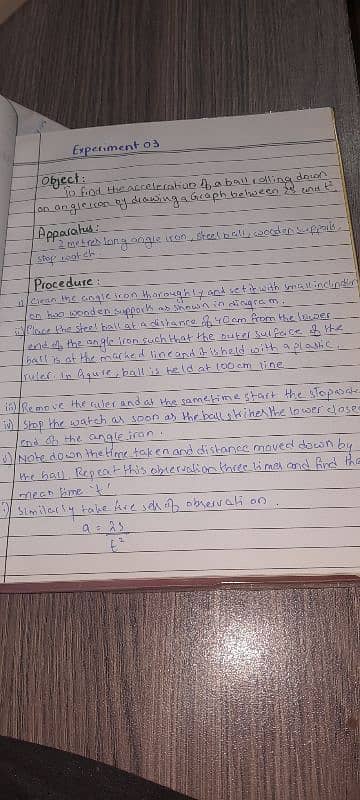 Experiment 03
Object:
To find the acceleration of a ball rolling down
an angle iron by drawing a Graph between 2s and t².
Apparatus:
2 metres long angle iron, steel ball, wooden support,
stop watch.
Procedure:
i) Clean the angle iron thoroughly and set it with small inclination
on two wooden support as shown in diagram.
ii) Place the steel ball at a distance of 40cm from the lower
end of the angle iron such that the outer surface of the
ball is at the marked line and it is held with a plastic
ruler. In figure, ball is held at 100 cm line
iii) Remove the ruler and at the same time start the stopwatch
iv) Stop the watch as soon as the ball strikes the lower closed
end of the angle iron.
v) Note down the time taken and distance moved down by
the ball. Repeat this observation three times and find the
mean time 't'
) Similarly take five set of observation.
a = 2s
t²